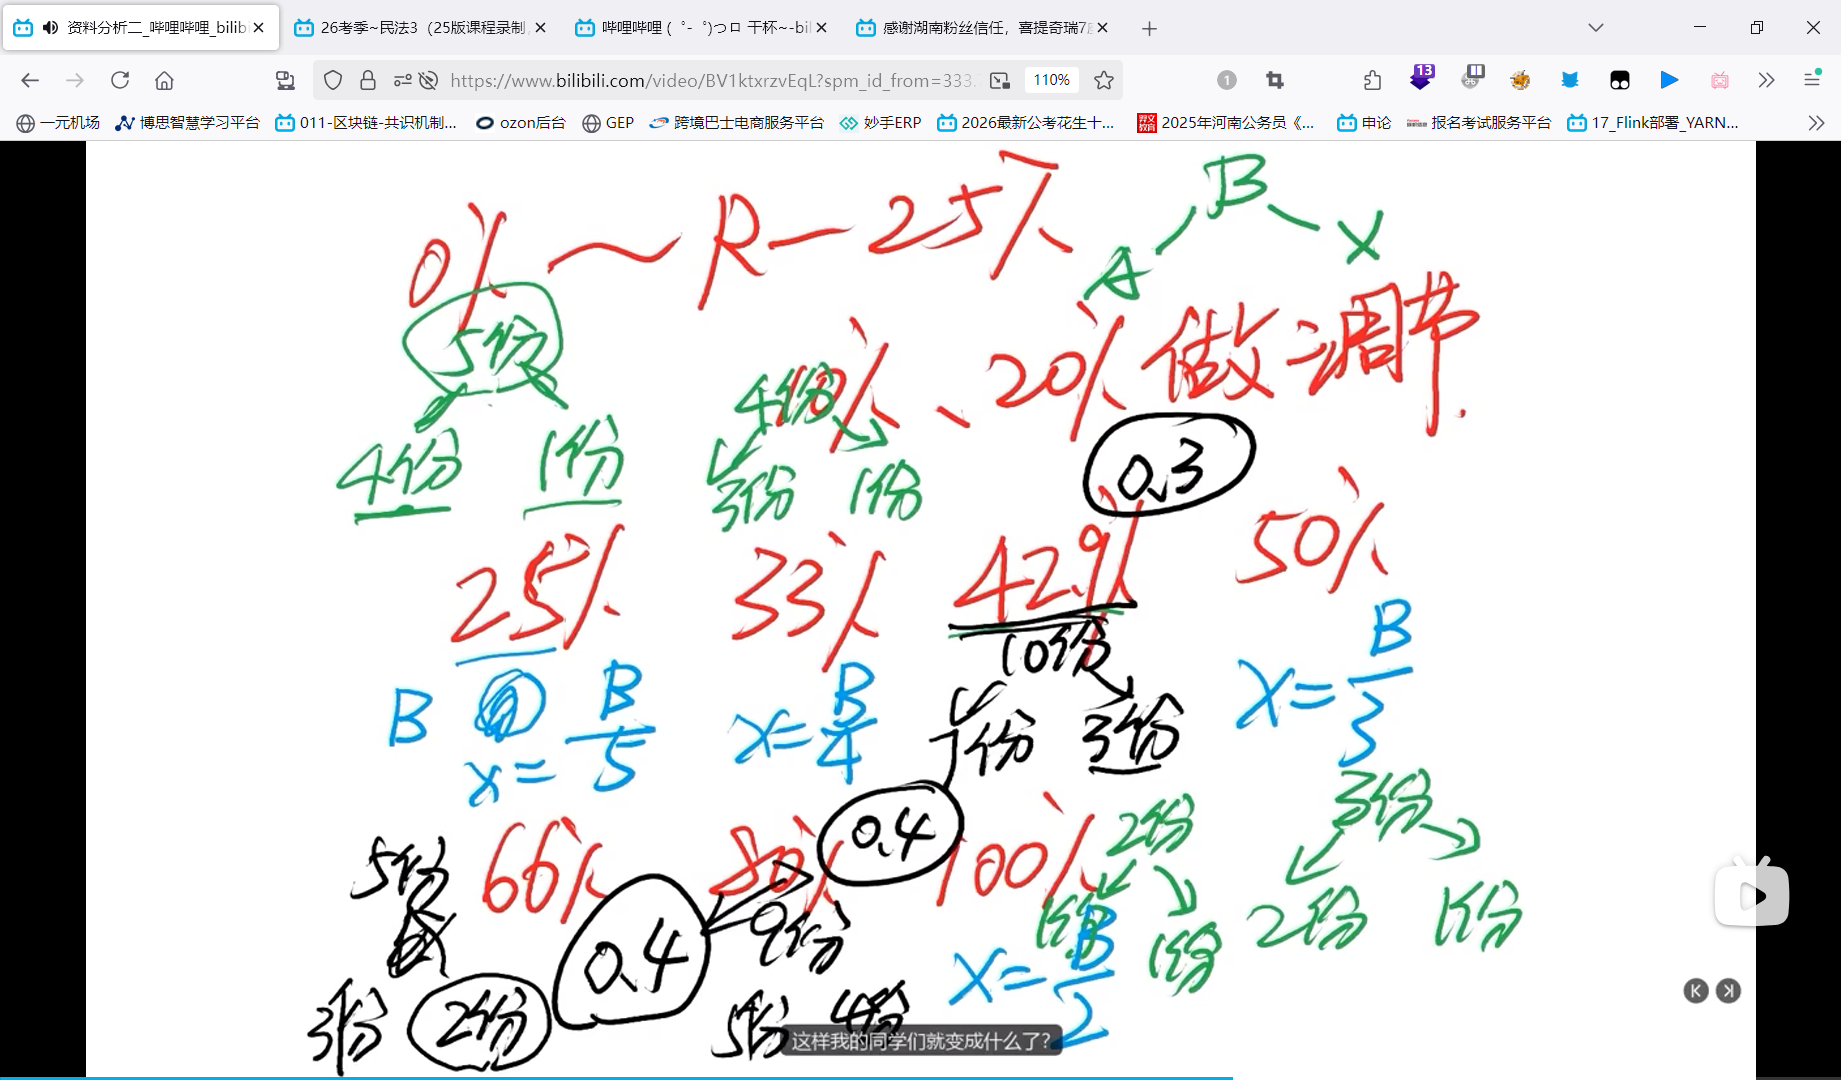 资料分析二_哔哩哔哩_bilibi
26考季~民法3（25版课程录制,
哔哩哔哩 (゜-゜)つロ 干杯~-bil
感谢湖南粉丝信任，喜提奇瑞7座
https://www.bilibili.com/video/BV1ktxrzvEqL?spm_id_from=333.
110%
1
13
一元机场
博思智慧学习平台
011-区块链-共识机制...
ozon后台
GEP
跨境巴士电商服务平台
妙手ERP
2026最新公考花生十...
2025年河南公务员《...
申论
报名考试服务平台
17_Flink部署_YARN...
0% ~ R — 25%
B
A X
5份
4份 1份
4份
3份 1份
、20%做调节.
0.3
25% 33% 42.9% 50%
10份
7份 3份
B
x = B/5
x = B/4
X = B/3
3份
2份 1份
66% 80% 100%
0.4
2份
1份 1份
5份
3份 2份
0.4
9份
5份 4份
X = B/2
这样我的同学们就变成什么了？